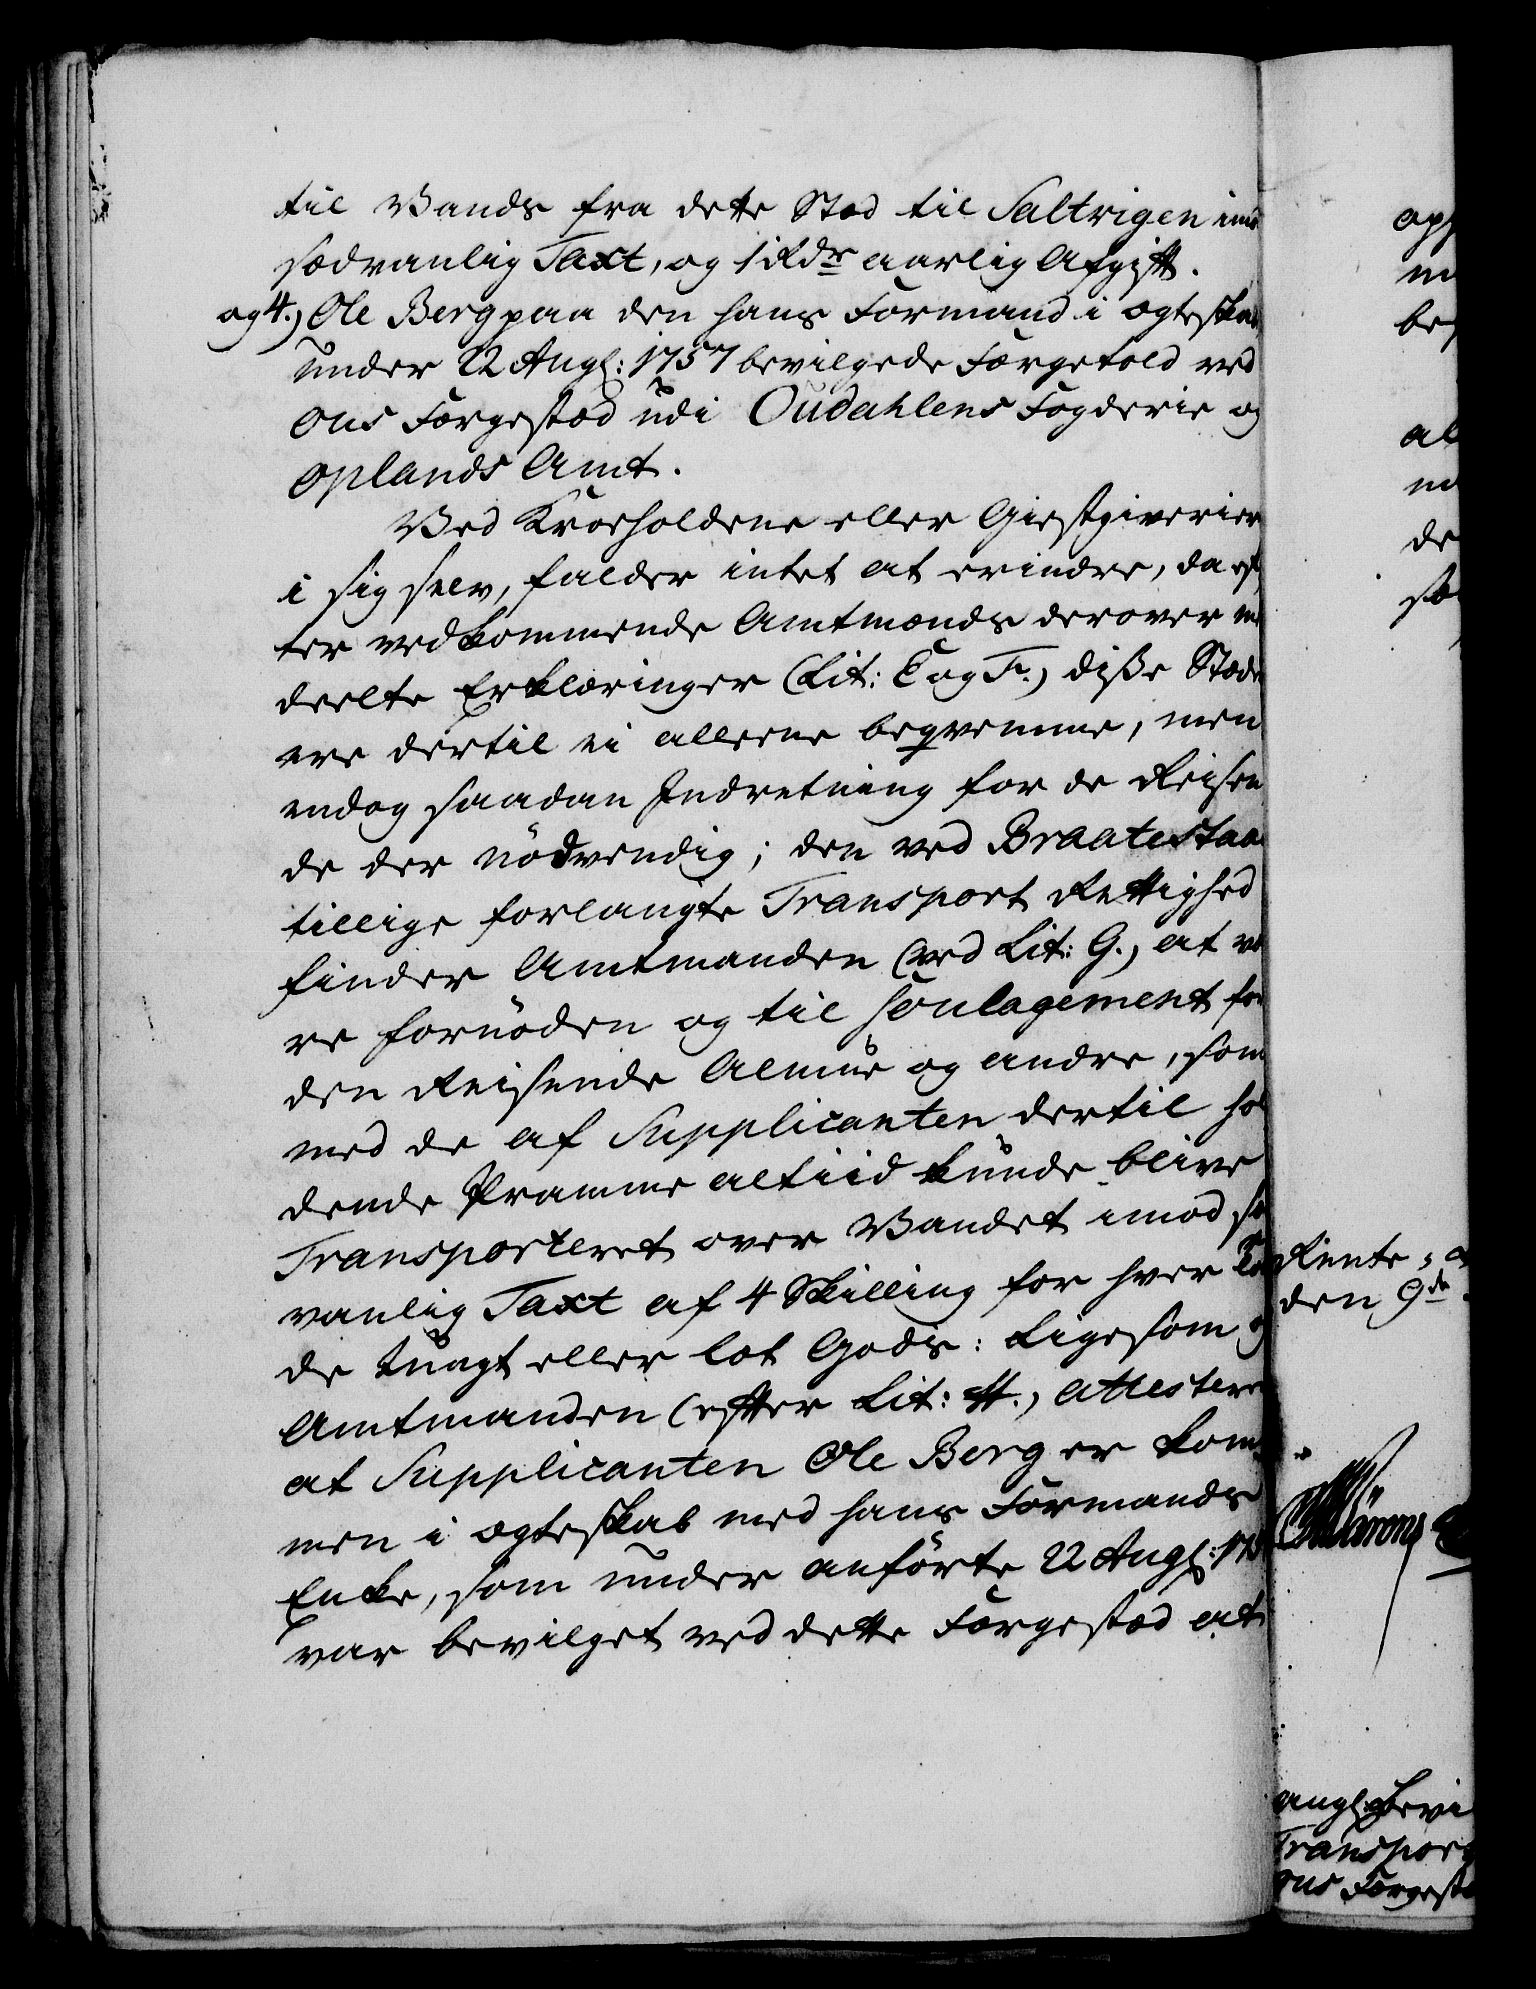 til Vands fra dette Stæd til Saltrigen imod
sædvanlig Taxt, og 1 Rdr aarlig Afgift.
og 4.) Ole Berg paa den hans Formand i ægteskab
under 22 Aug: 1757 bevilgede Færgetold ved
Ons Færgestæd udi Oudahlens Fogderie og
Oplands Amt.
Ved Kroeholdene eller Giestgiverier
i sig selv, falder intet at erindre, da ef
ter vedkommende Amtmænds derover med
deelte Erklæringer (Lit: E og F.) disse Stæder
ere dertil ei alleene beqvemme, men
endog saadan Indretning for de Reisen
de der nödvendig; den ved Braatestaa
tillige forlangte Transport Rettighed
finder Amtmanden (ved Lit: G.) at væ
re fornöden og til soulagement for
den Reisende Almue og andre, som
med de af Supplicanten dertil hol
dende Pramme altiid kunde blive
Transporteret over Vandet imod sæd
vanlig Taxt af 4 Skilling for hver
de tungt eller lat Gods: Ligesom og
Amtmanden (efter Lit: H.) attesterer
at Supplicanten Ole Berg er kom
men i ægteskab med hans Formands
Enke, som under anförte 22 Aug: 175
var bevilget ved dette Færgestæd at
opp
be
al
de
Rente
den 9de
ang: Bevi
Transport
Ons Færgestæ